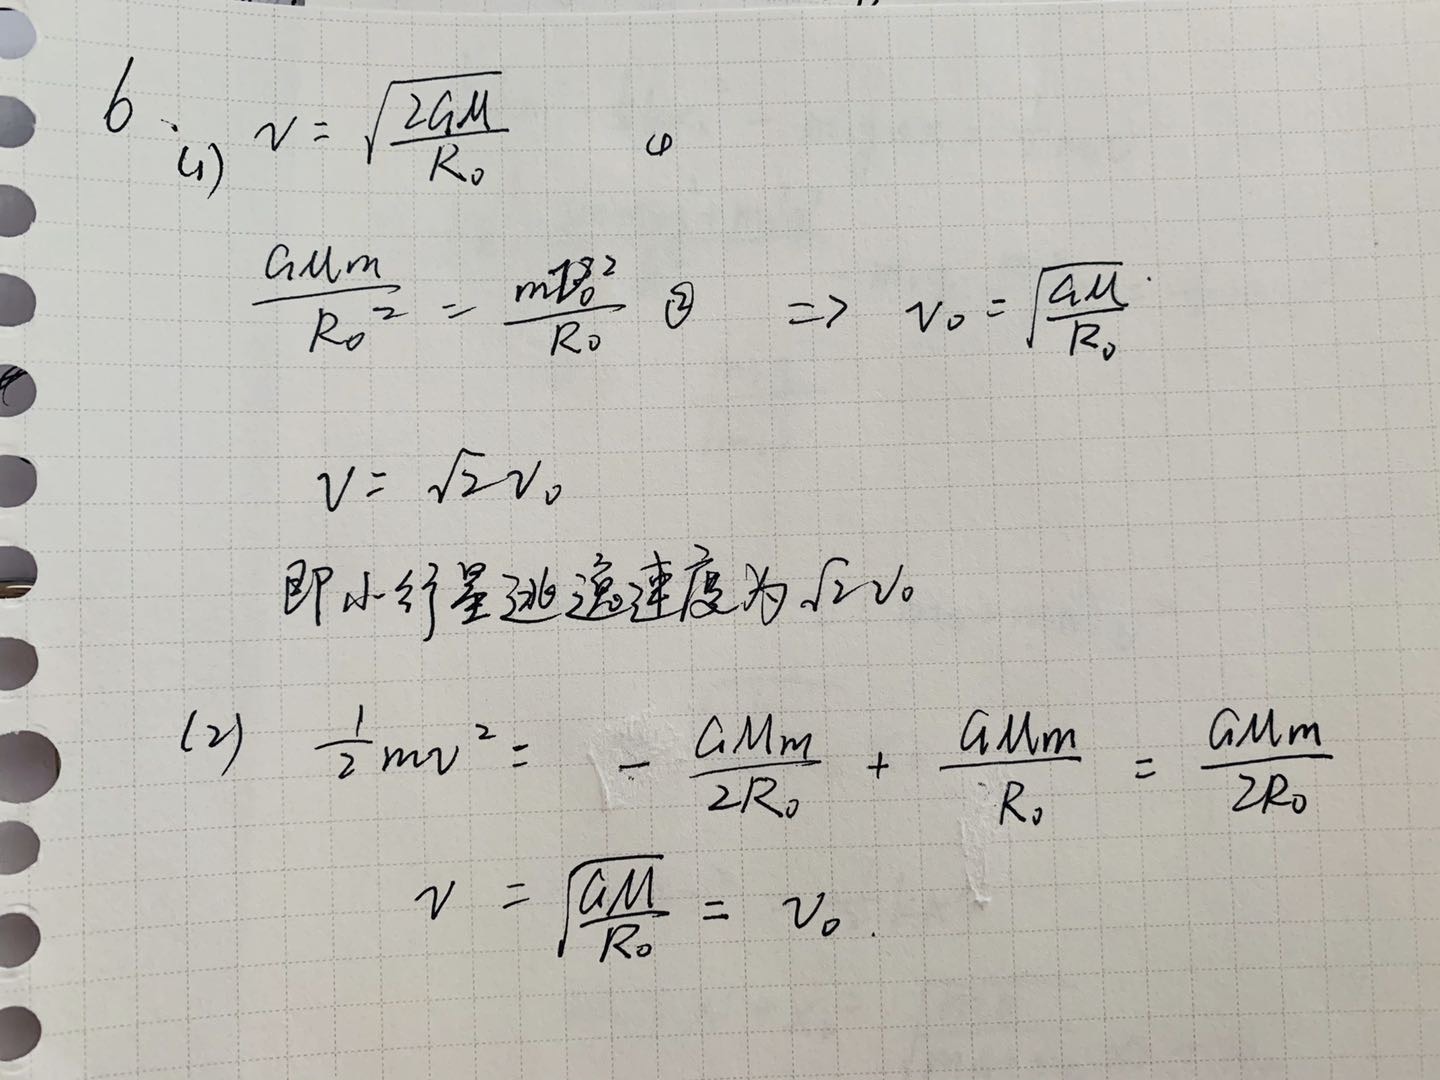 6. (1) v = √(2GM/R₀) ①
GMm/R₀² = mv₀²/R₀ ② => v₀ = √(GM/R₀)
v = √2 v₀
即小行星逃逸速度为√2 v₀
(2) 1/2 mv² = - GMm/2R₀ + GMm/R₀ = GMm/2R₀
v = √(GM/R₀) = v₀.